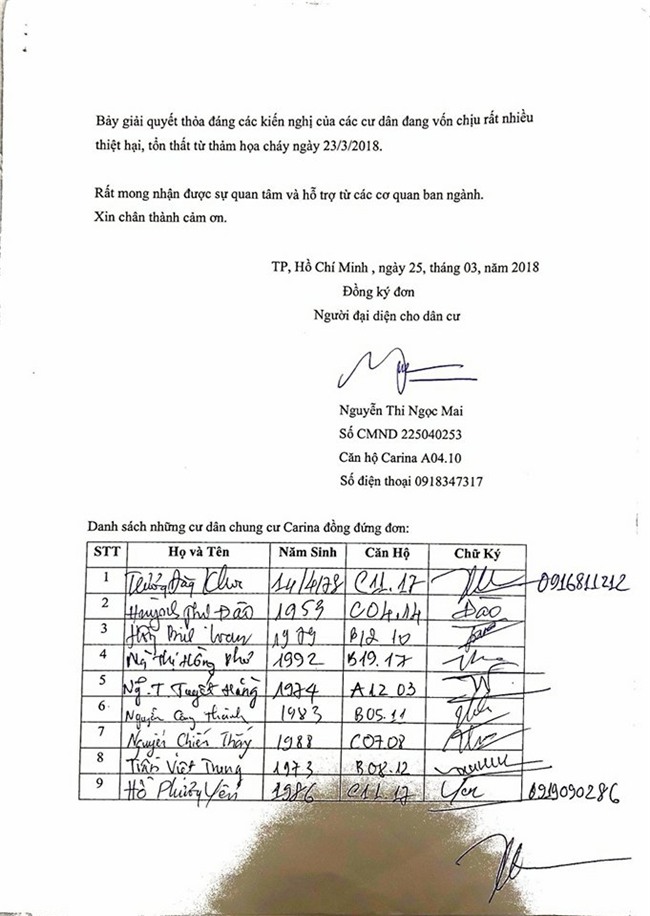 Bảy giải quyết thỏa đáng các kiến nghị của các cư dân đang vốn chịu rất nhiều
thiệt hại, tổn thất từ thảm họa cháy ngày 23/3/2018.
Rất mong nhận được sự quan tâm và hỗ trợ từ các cơ quan ban ngành.
Xin chân thành cảm ơn.
TP, Hồ Chí Minh , ngày 25, tháng 03, năm 2018
Đồng ký đơn
Người đại diện cho dân cư
Nguyễn Thi Ngọc Mai
Số CMND 225040253
Căn hộ Carina A04.10
Số điện thoại 0918347317
Danh sách những cư dân chung cư Carina đồng đứng đơn:
STT Họ và Tên Năm Sinh Căn Hộ Chữ Ký
1 14/4/78 C11.17 0916811212
2 Đào 1953 C04.14 Đào
3 1979 B12 10
4 Ng Thị Hồng 1992 B19.17
5 Ng.T Tuyết Hằng 1974 A12 03
6 Nguyễn Công Thành 1983 B05.11
7 Nguyễn Chiến Thắng 1988 C07.08
8 Trần Việt Trung 1973 B08.12
9 Hồ Phương Yến 1986 C11.17 Yen 0919090286